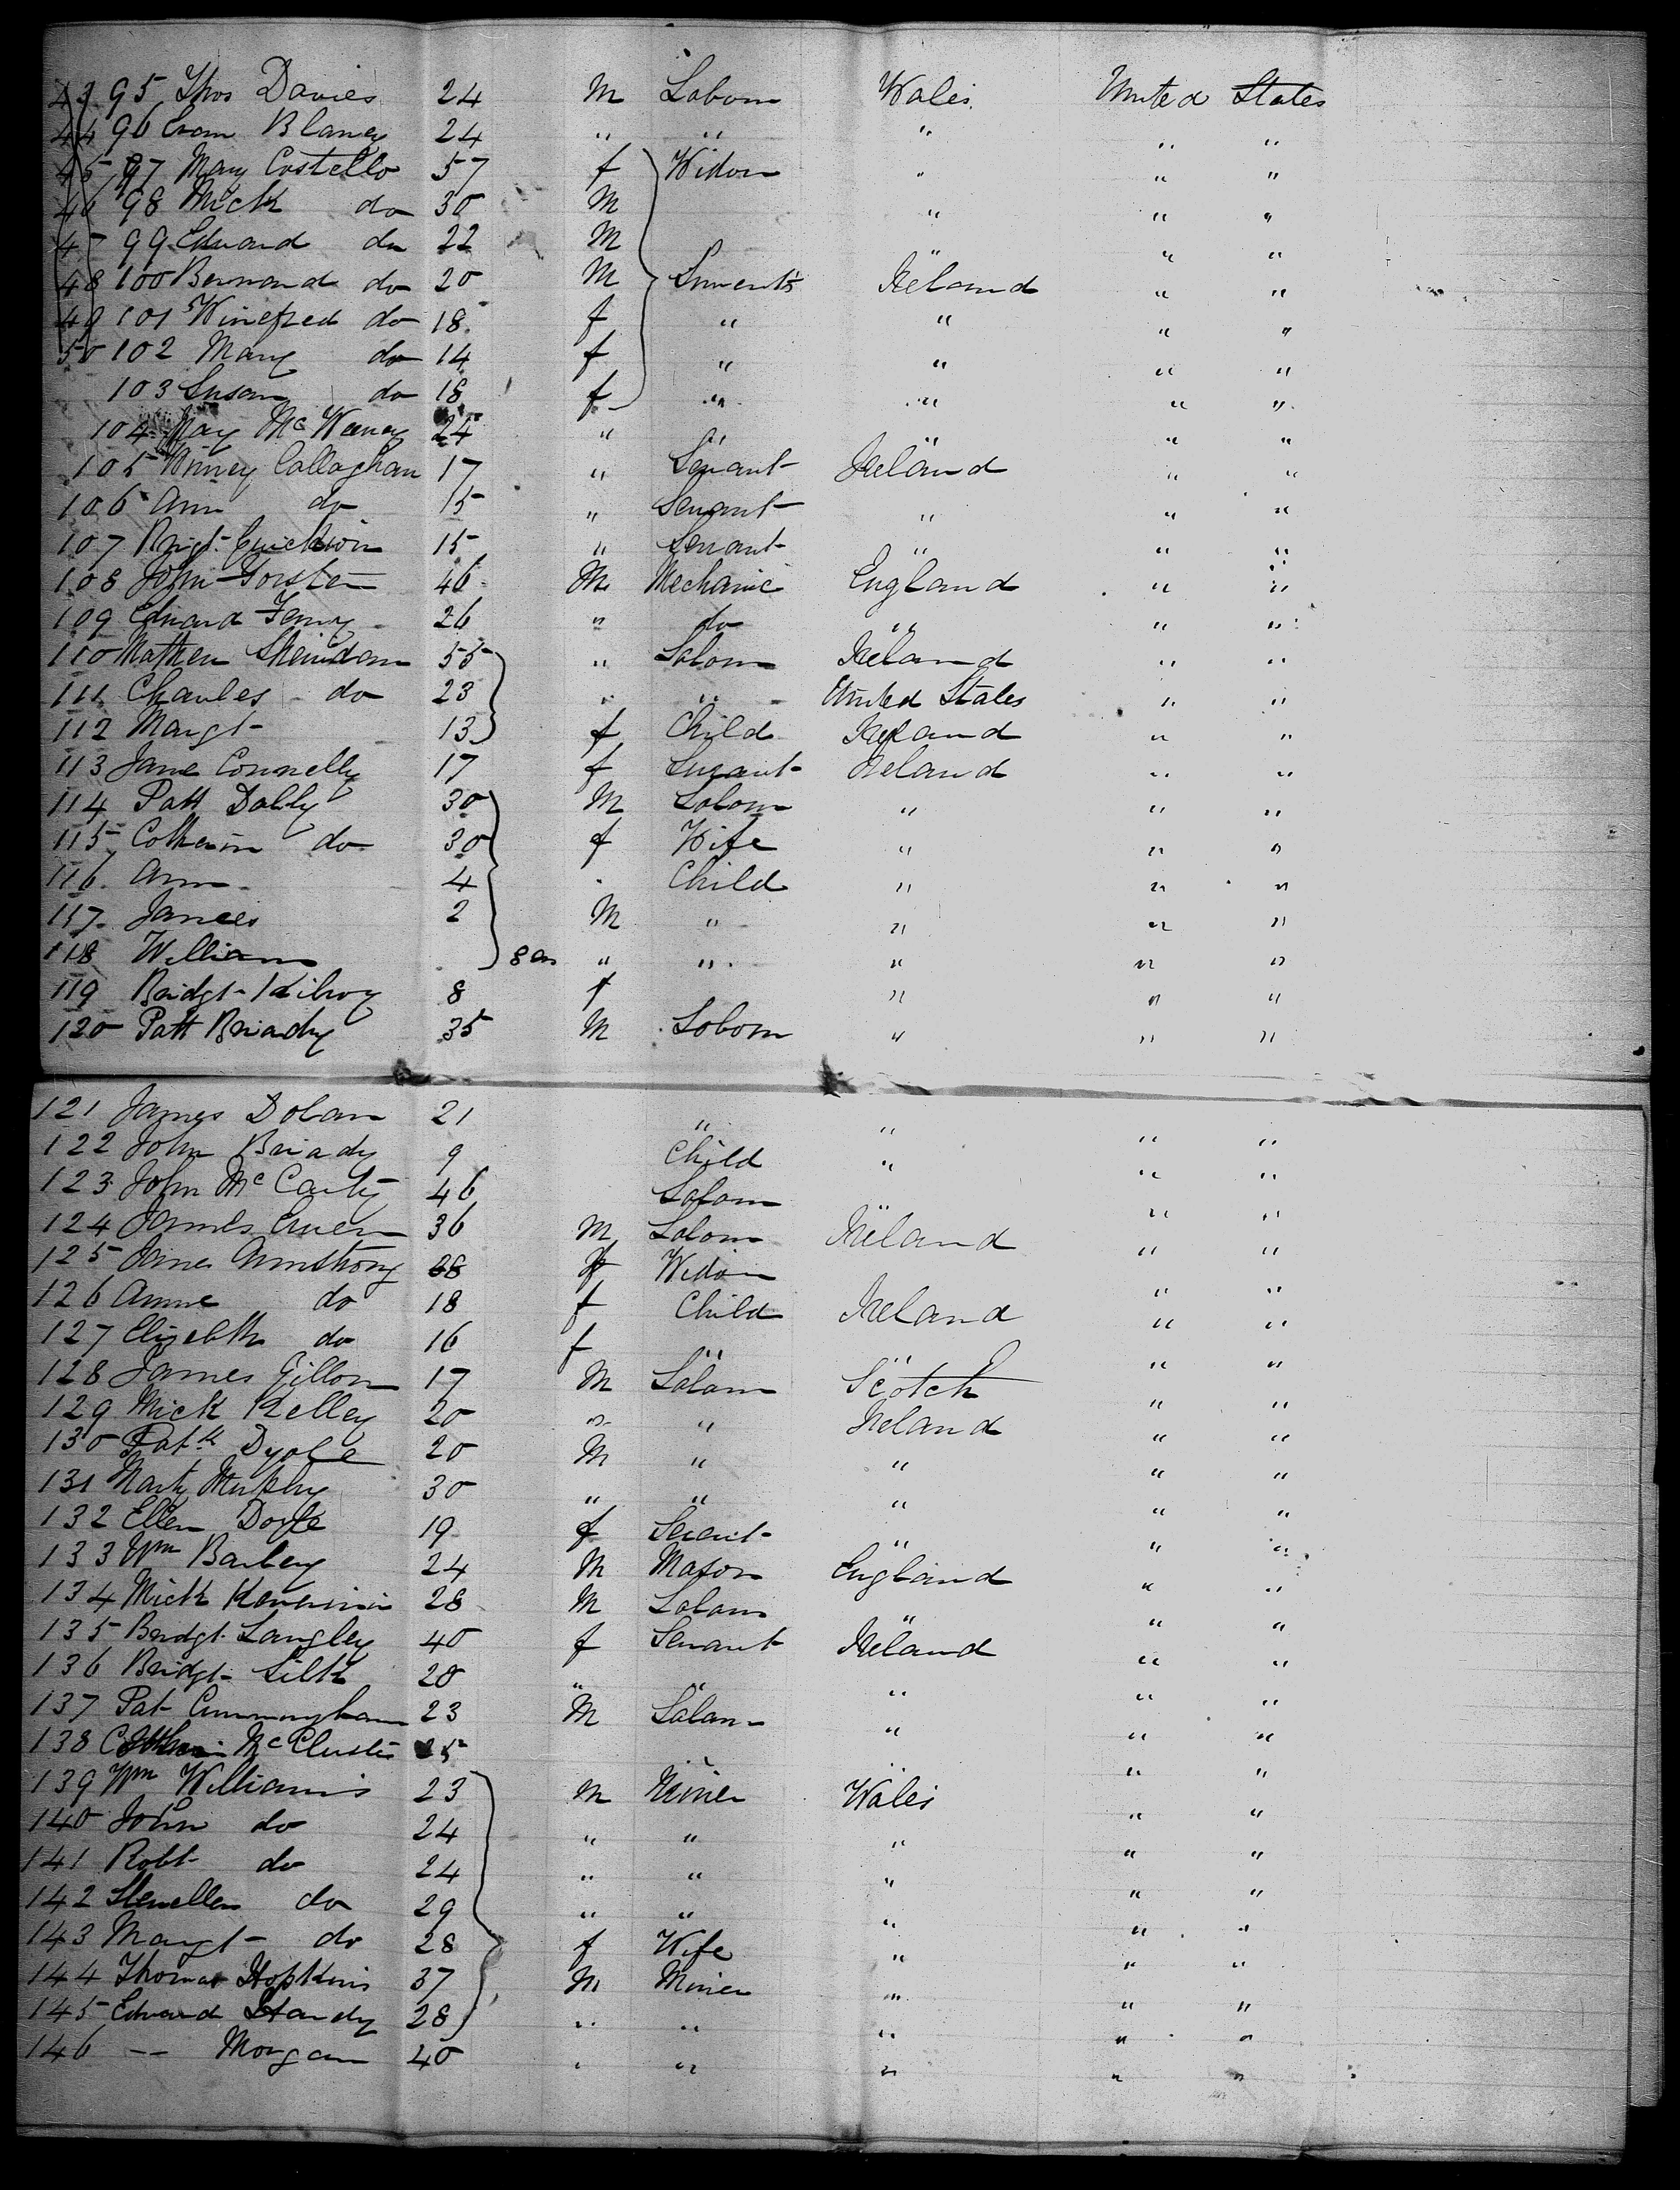 43 95 Thos Davies 24 M Labour Wales United States
44 96 Evan Blaney 24 " " " " "
45 97 Mary Costello 57 f Widow " " "
46 98 Mick do 30 M " " "
47 99 Edward do 22 M " "
48 100 Bernard do 20 M Servants Ireland " "
49 101 Winefred do 18 f " " " "
50 102 Mary do 14 f " " " "
103 Susan do 18 f " " " "
104 May Mc 24 " " " " "
105 Callaghan 17 " Servant Ireland " "
106 Ann do 15 " Servant " " "
107 Brigt. 15 " Servant " " "
108 John Forster 46 M Mechanic England " "
109 Edward 26 " do " " "
110 Mathew Sheridan 55 " Labour Ireland " "
111 Charles do 23 " " United States " "
112 Margt 13 f Child Ireland " "
113 Jane Connelly 17 f Servant Ireland " "
114 Patt Dolly 30 M Labour " " "
115 Catherin do 30 f Wife " " "
116 Ann 4 " Child " " "
117 James 2 M " " " "
118 William 8 m " " " " "
119 Bridgt Kilroy 8 f " " "
120 Patt Briady 35 M Labour " " "
121 James Dolan 21 " " " "
122 John Briady 9 Child " " "
123 John Mc Carty 46 Labour " "
124 James 36 M Labour Ireland " "
125 Armstrong 38 f Widow
126 Anne do 18 f Child Ireland " "
127 Elizebth do 16 f " " " "
128 James Gillon 17 M Labour Scotch " "
129 Mick Kelley 20 " " Ireland " "
130 Patk Dyole 20 M " " " "
131 Marty Murphy 30 " " " " "
132 Ellen Doyle 19 f Servant " " "
133 Wm Barley 24 M Mason England " "
134 Mick 28 M Labour " "
135 Bridgt. Langley 40 f Servant Ireland " "
136 Bridgt Silk 28 " " " " "
137 Pat Cunningham 23 M Labour " " "
138 Mc 25 " "
139 Wm Williams 23 M Miner Wales " "
140 John do 24 " " " " "
141 Robt do 24 " " " " "
142 Llewellen do 29 " " " " "
143 Margt do 28 f Wife " " "
144 Thomas Hopkins 37 M Miner " " "
145 Edward 28 " " " " "
146 -- Morgan 40 " " " " "